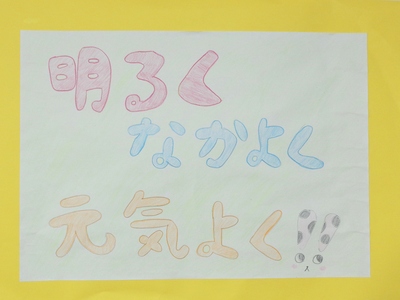 明るく
なかよく
元気よく!!